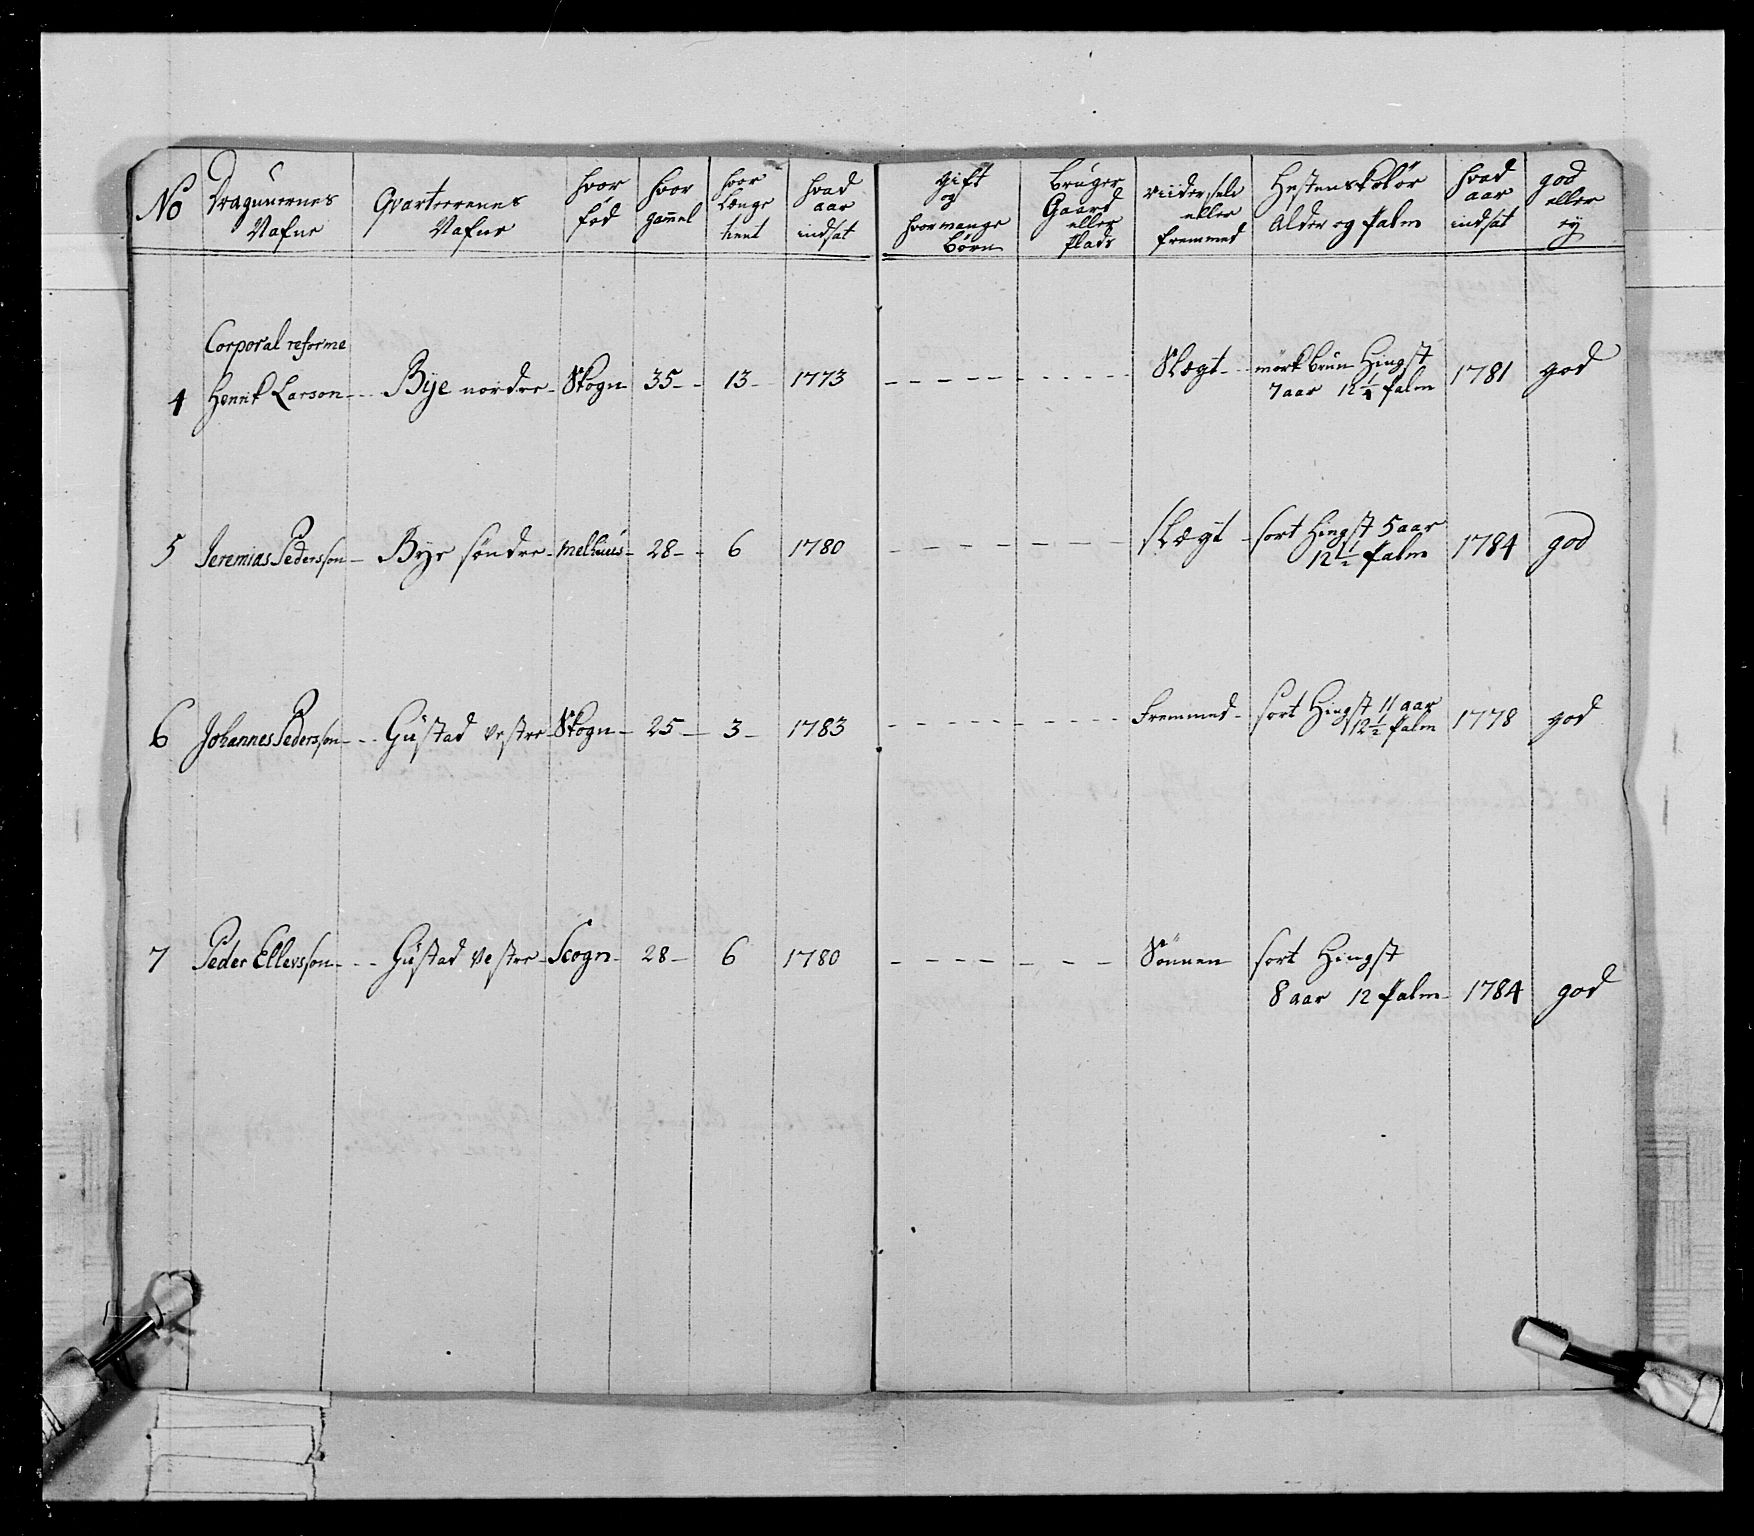 No
Dragunernes
Nafne
Qvarteerenes
Nafne
hvor
fød
hvor
gam̄el
hvor
Længe
tient
hvad
aar
indsat
gift
og
hvor mange
Børn
Bruger
Gaard
eller
Plads
Riider, selv
eller
fremmed
Hestens Kolør
Alder og Palm
hvad
aar
indsat
god
eller
ey
Corporal reforme
4 Henrik Larson - - Bye nordre - Skogn 35 - - 13 - 1773 - - - - - - - - - Slægt - mörk brun Hingst 1781 god
7 aar 12¼ Palm
5 Jeremias Pedersson - Bye søndre - melhuus - 28 - - 6 1780 - - - - - - - slægt - sort Hingst 5 aar 1784 god
12½ Palm
6 Johannes Pedersson - - Gustad vestre - Skogn - 25 - 3 - 1783 - - - - - - - - Fremmed - sort Hingst 11 aar 1778 god
12½ Palm
7 Peder Ellevsson - - Gustad vestre - Scogn - 28 - 6 1780 - - - - - - - Sönnen sort Hingst
8 aar 12 Palm - 1784 god